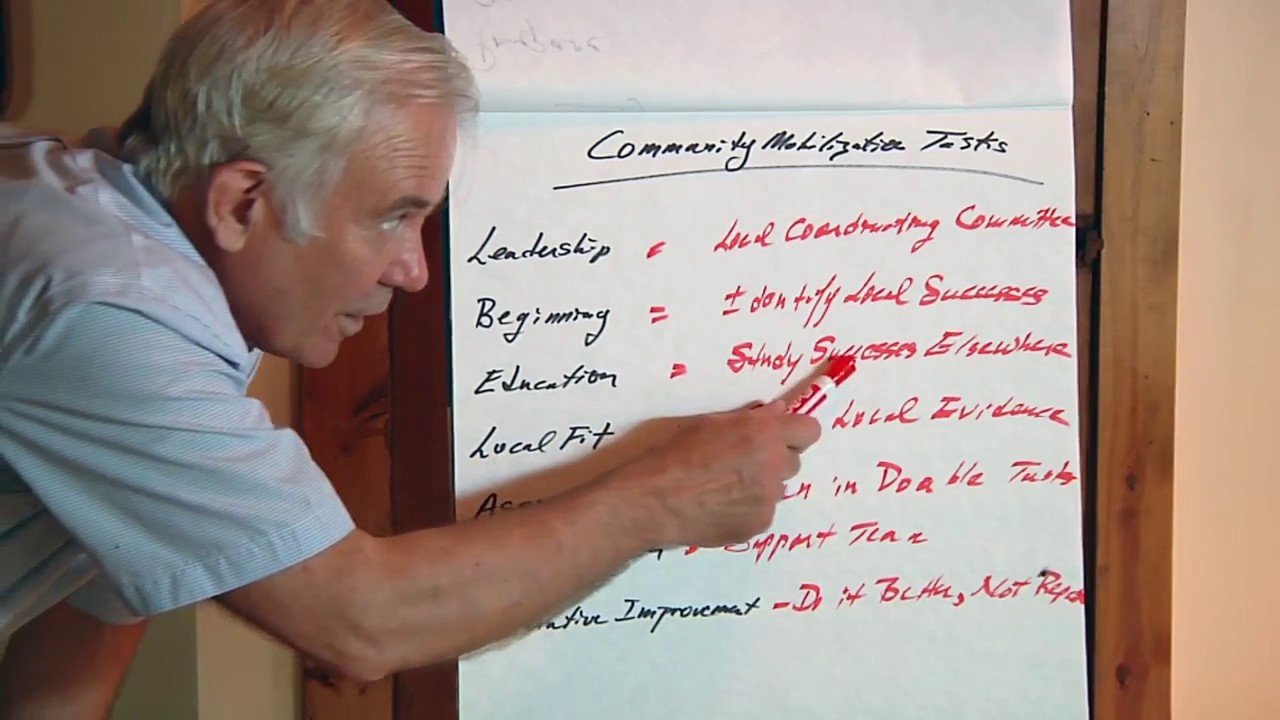 Community Mobilization Tasks
Leadership = Local Coordinating Committee
Beginning = Identify Local Successes
Education = Study Successes Elsewhere
Local Fit Local Evidence
in Doable Tasks
Support Team
Improvement - Do it Better, Not